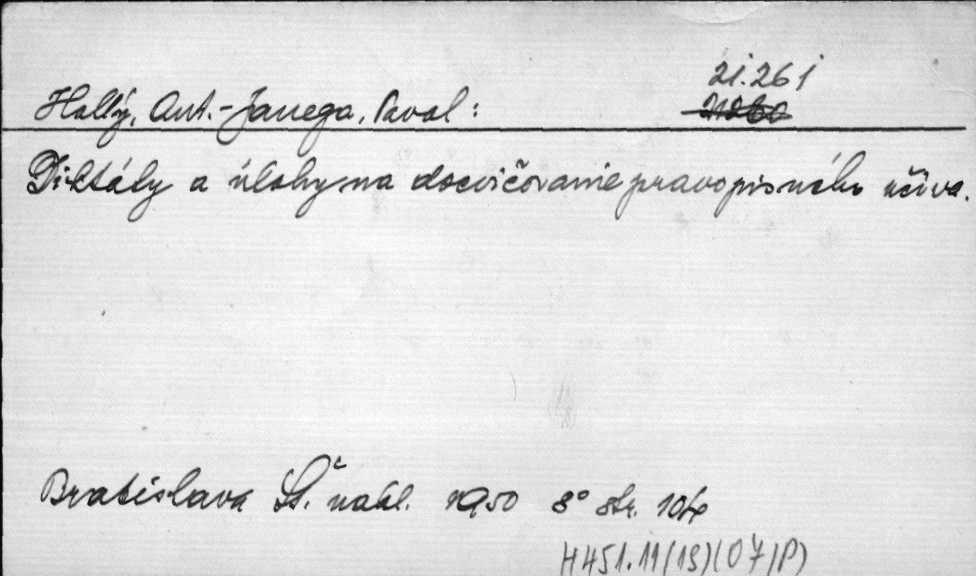 21.261
Hollý, Ant. - Janega, Pavol:
Diktáty a úlohy na docvičovanie pravopisného učiva.
Bratislava Št. nakl. 1950 8° str. 104
H451.11(18)(07)(P)